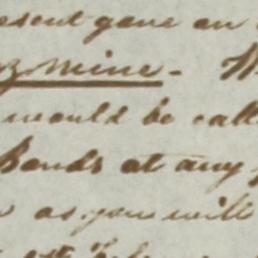 esent gave an
mine - W
would be call
Bonds at any
as you will